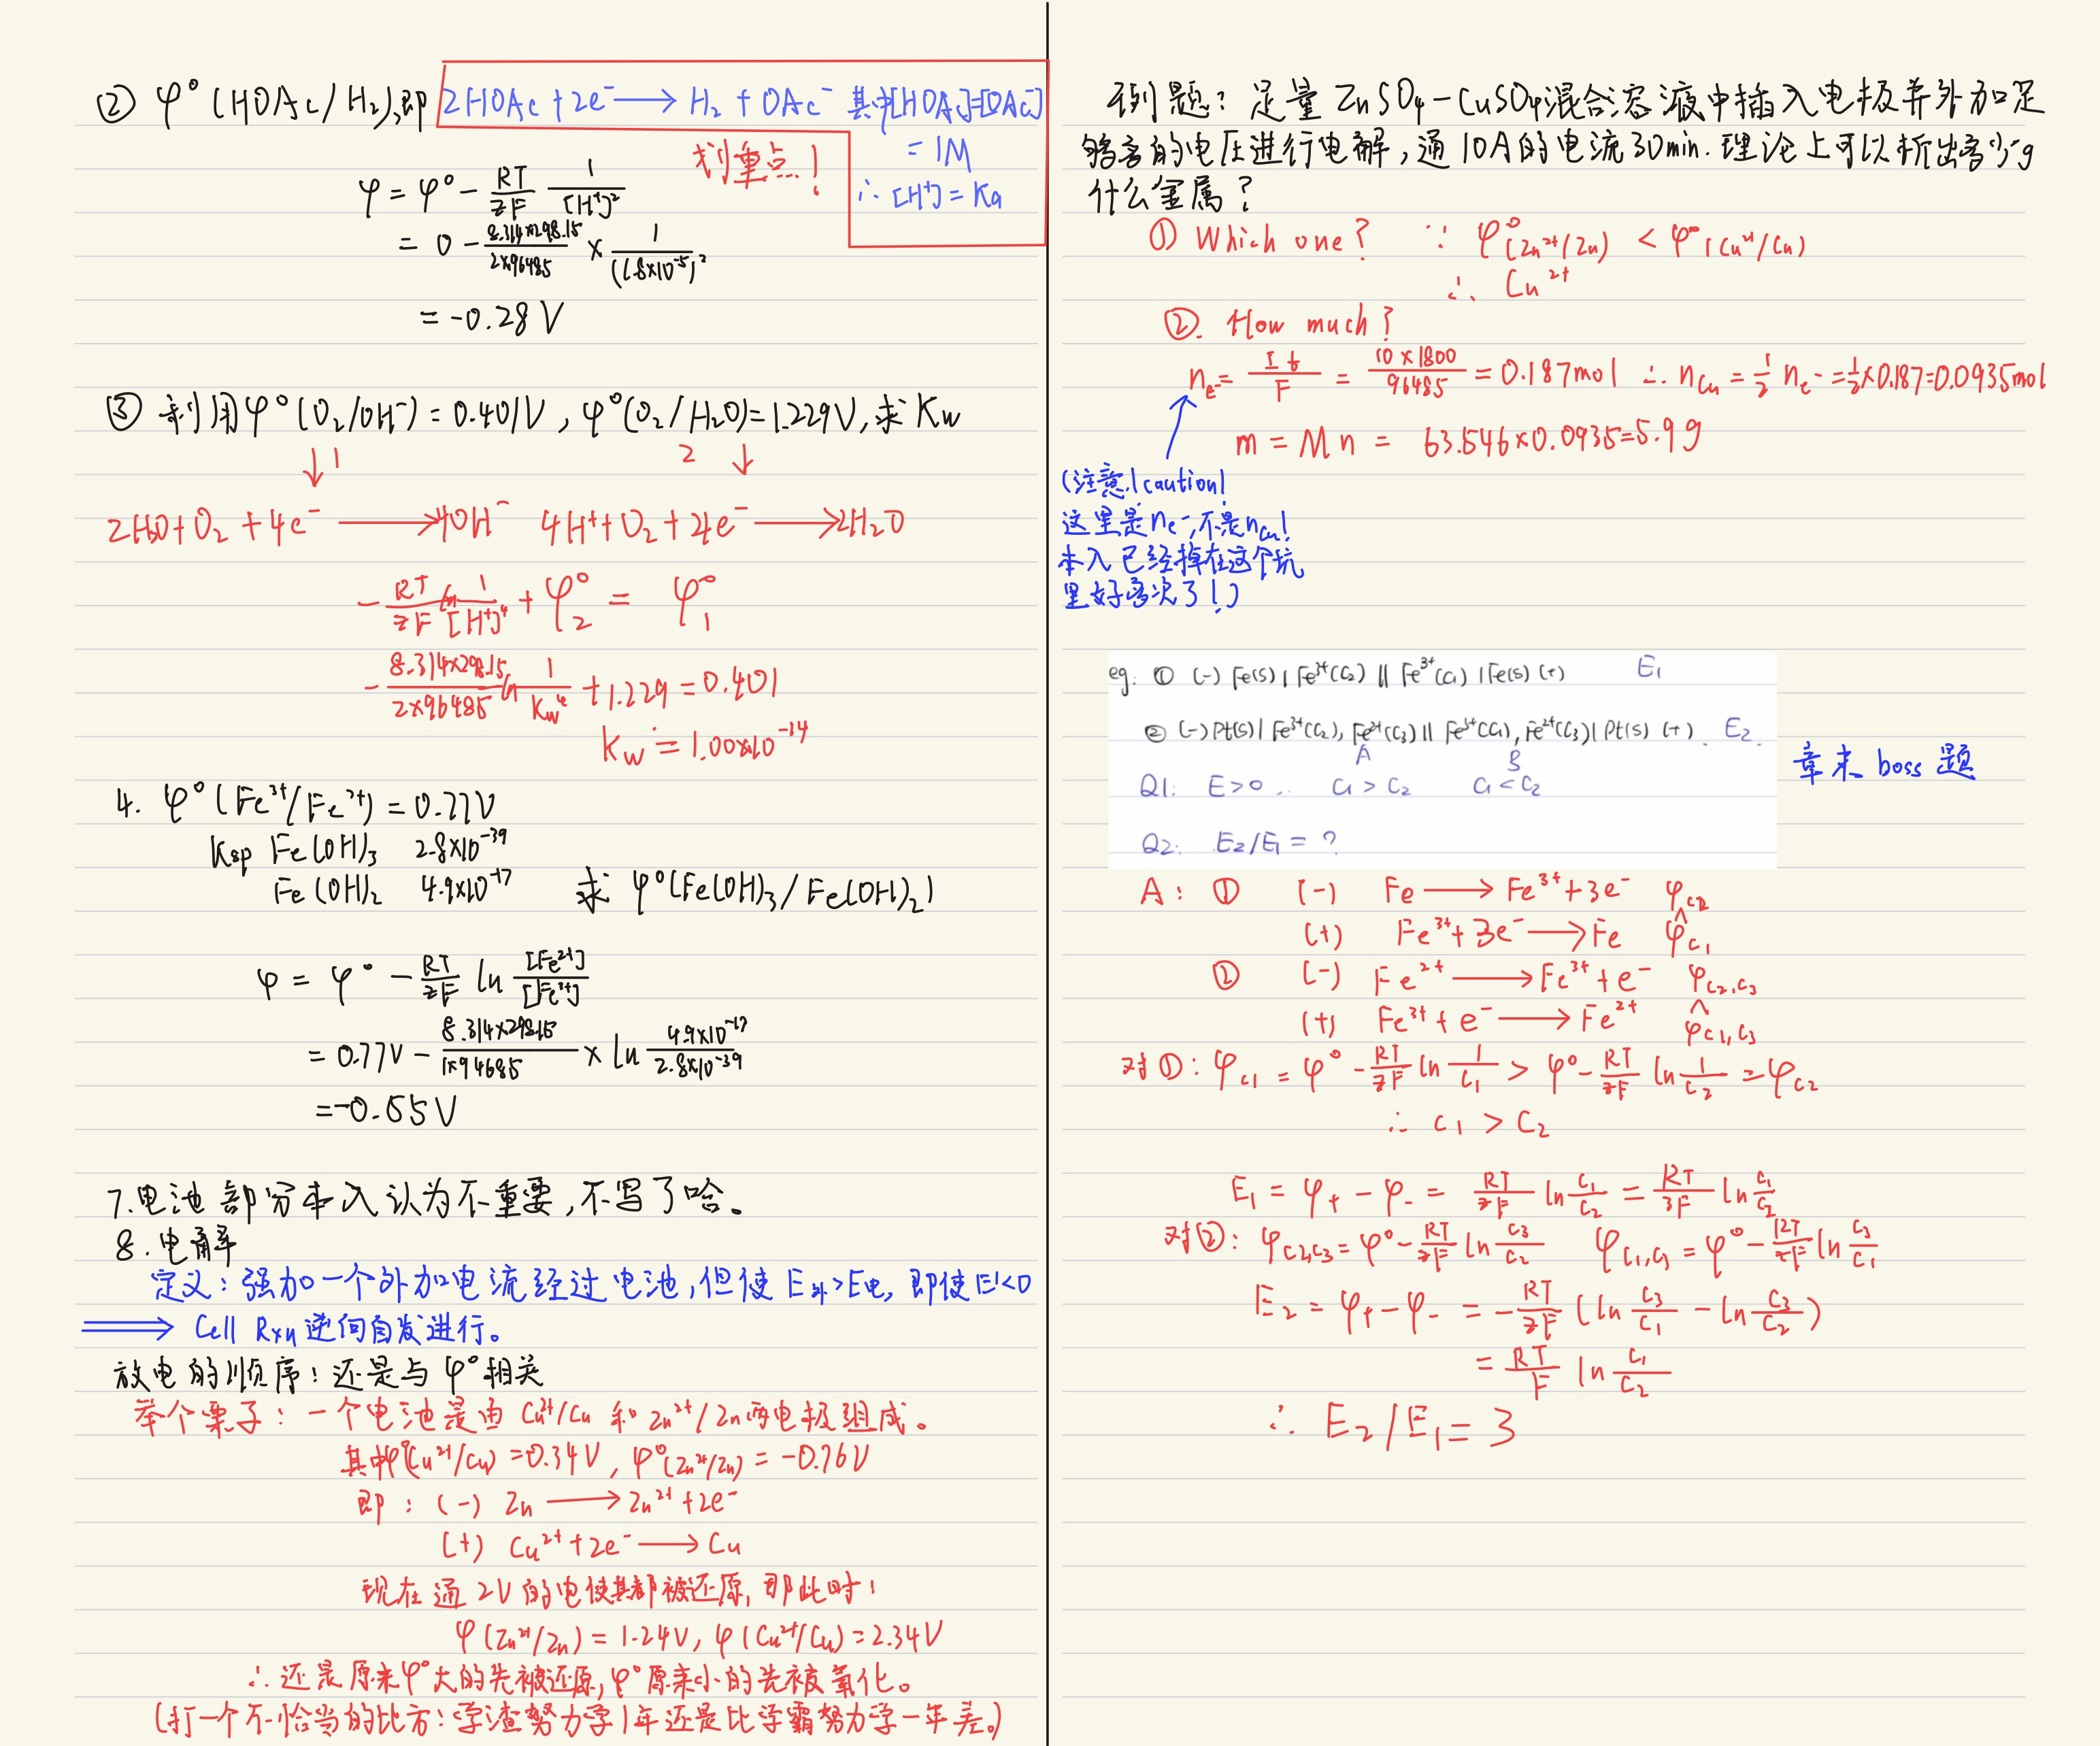 ② φ°(HOAc/H₂),即 2HOAc + 2e⁻ ⟶ H₂ + OAc⁻ 其中[HOAc]=[OAc⁻]
= 1M
∴ [H⁺] = Ka
划重点!
φ = φ° - RT/zF 1/[H⁺]²
= 0 - 8.314×298.15/2×96485 × 1/(1.8×10⁻⁵)²
= -0.28 V
③ 利用φ°(O₂/OH⁻) = 0.401V, φ°(O₂/H₂O)=1.229V,求 Kw
↓1 2↓
2H₂O + O₂ + 4e⁻ ⟶ 4OH⁻ 4H⁺ + O₂ + 4e⁻ ⟶ 2H₂O
- RT/zF ln 1/[H⁺]⁴ + φ₂° = φ₁°
- 8.314×298.15/2×96485 ln 1/Kw⁴ + 1.229 = 0.401
Kw = 1.00×10⁻¹⁴
4. φ°(Fe³⁺/Fe²⁺) = 0.77V
Ksp Fe(OH)₃ 2.8×10⁻³⁹
Fe(OH)₂ 4.9×10⁻¹⁷ 求 φ°(Fe(OH)₃/Fe(OH)₂)
φ = φ° - RT/zF ln [Fe²⁺]/[Fe³⁺]
= 0.77V - 8.314×298.15/1×94685 × ln 4.9×10⁻¹⁷/2.8×10⁻³⁹
= -0.55V
7.电池部分本人认为不重要,不写了哈。
8.电解
定义:强加一个外加电流经过电池,但使 E外>E电, 即使E<0
⟹ Cell Rxn 逆向自发进行。
放电的顺序:还是与 φ°相关
举个栗子:一个电池是由 Cu²⁺/Cu 和 Zn²⁺/Zn两电极组成。
其中φ°(Cu²⁺/Cu) = 0.34V, φ°(Zn²⁺/Zn) = -0.76V
即:(-) Zn ⟶ Zn²⁺ + 2e⁻
(+) Cu²⁺ + 2e⁻ ⟶ Cu
现在通 2V 的电使其都被还原,那此时:
φ(Zn²⁺/Zn) = 1.24V, φ(Cu²⁺/Cu) = 2.34V
∴还是原来φ°大的先被还原,φ°原来小的先被氧化。
(打一个不恰当的比方:学渣努力学1年还是比学霸努力学一年差。)
例题:足量 ZnSO₄-CuSO₄混合溶液中插入电极并外加足
够高的电压进行电解,通10A的电流30min.理论上可以析出多少g
什么金属?
① Which one? ∵ φ°(Zn²⁺/Zn) < φ°(Cu²⁺/Cu)
∴ Cu²⁺
②. How much?
n e⁻ = It/F = 10×1800/96485 = 0.187mol ∴ nCu = ½ n e⁻ = ½×0.187=0.0935mol
m = Mn = 63.546×0.0935=5.9g
(注意!caution!
这里是ne⁻,不是nCu!
本人已经掉在这个坑
里好多次了!)
eg. ① (-) Fe(s) | Fe³⁺(c₂) || Fe³⁺(c₁) | Fe(s) (+) E₁
② (-) Pt(s) | Fe³⁺(c₂), Fe²⁺(c₃) || Fe³⁺(c₁), Fe²⁺(c₃) | Pt(s) (+). E₂.
A B
Q1: E>0 .. c₁ > c₂ c₁ < c₂
Q2: E₂/E₁ = ?
章末 boss 题
A: ① (-) Fe ⟶ Fe³⁺ + 3e⁻ φc₂
∧
(+) Fe³⁺ + 3e⁻ ⟶ Fe φc₁
② (-) Fe²⁺ ⟶ Fe³⁺ + e⁻ φc₂,c₃
∧
(+) Fe³⁺ + e⁻ ⟶ Fe²⁺ φc₁,c₃
对①: φc₁ = φ° - RT/zF ln 1/c₁ > φ° - RT/zF ln 1/c₂ = φc₂
∴ c₁ > c₂
E₁ = φ₊ - φ₋ = RT/zF ln c₁/c₂ = RT/3F ln c₁/c₂
对②: φc₂,c₃ = φ° - RT/zF ln c₃/c₂ φc₁,c₃ = φ° - RT/zF ln c₃/c₁
E₂ = φ₊ - φ₋ = - RT/zF (ln c₃/c₁ - ln c₃/c₂)
= RT/F ln c₁/c₂
∴ E₂/E₁ = 3